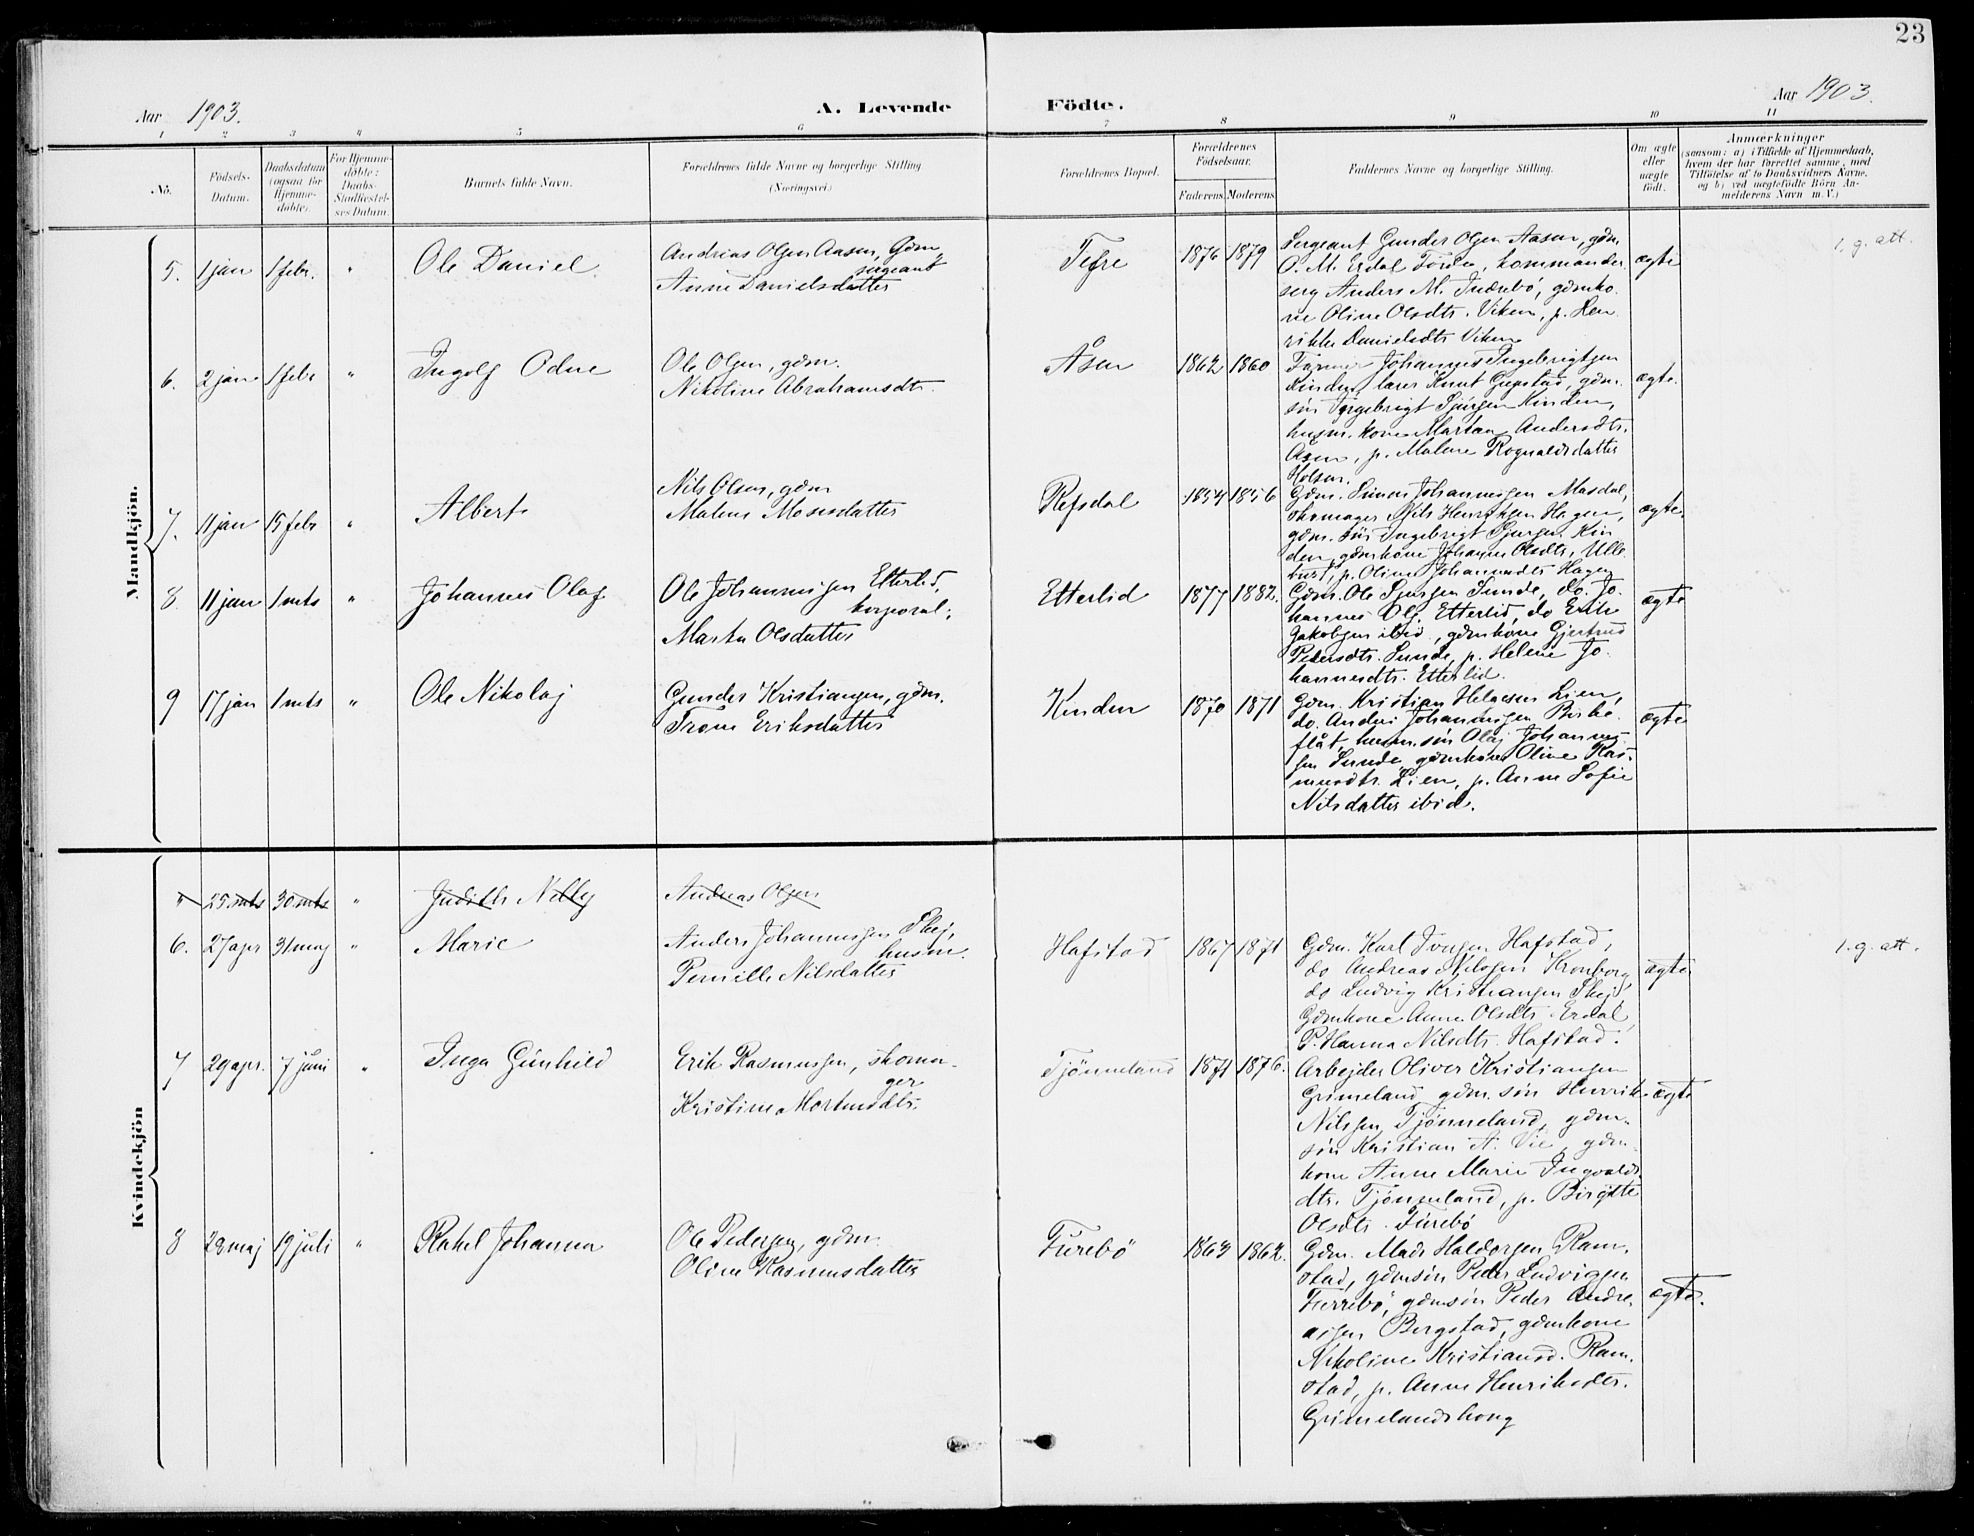 23
Aar 1903.
A. Levende Födte.
Aar 1903.
1 2 3 4 5 6 7 8 9 10 11
No.
Födsels-
Datum.
Daabsdatum
(ogsaa for
Hjemme-
döbte).
For Hjemme-
döbte:
Daabs-
Stadfæstel-
ses Datum.
Barnets fulde Navn.
Forældrenes fulde Navne og borgerlige Stilling
(Næringsvei.)
Forældrenes Bopæl.
Forældrenes
Födselsaar.
Faderens Moderens
Faddernes Navne og borgerlige Stilling.
Om ægte
eller
uægte
födt.
Anmærkninger
(saasom: a) i Tilfælde af Hjemmedaab,
hvem der har forrettet samme, med
Tilföielse af to Daabsvidners Navne,
og b) ved uægtefödte Börn An-
melderens Navn m. V.)
Mandkjön.
5. 1 jan 1 febr. " Ole Daniel.
Andreas Olsen Aasen, Gdm,
sergeant
Anne Danielsdatter
Tefre 1876 1879
Sergeant Gunder Olsen Aasen, gdm.
O. M. Erdal Förde, kommander
serg Anders M. Indrebö, gdmko.
ne Oline Olsdtr. Viken, p. Hen
rikke Danielsdtr Viken
ægte
1. g. att.
6. 2 jan 1 febr " Ingolf Odne
Ole Olsen, gdm.
Nikoline Abrahamsdtr.
Åsen 1862 1860
Johannes Ingebrigtsen
Kinden, lærer Knut gdm.
sön Ingebrigt Sjursen Kinden,
husm. kone Martan Andersdtr.
Åsen, p. Malene Rognaldsdatter
Holsen.
ægte.
7. 11 jan 15 febr " Albert
Nils Olsen, gdm
Malene Monsdatter
Refsdal 1854 1856
Gdm. Simon Johannessen Masdal,
skomager Nils Henriksen Hagen,
gdm. sön Ingebrigt Sjursen Kin
den, gdmkone Johanne Olsdtr. Ulle
p. Oline Johannesdtr Hagen
ægte.
8 11 jan 1 mts " Johannes Olaf
Ole Johannessen Etterlid,
korporal,
Marta Olsdatter
Etterlid 1877 1882.
Gdm. Ole Sjursen Sunde, do. Jo.
hannes Ols. Etterlid, do Erik
Jakobsen ibid., gdmkone Gjertrud
Pedersdtr. Sunde, p. Helene Jo.
hannesdtr. Etterlid.
ægte
9 17 jan 1 mts " Ole Nikolaj
Gunder Kristiansen, gdm.
Trone Eriksdatter
Kinden 1870 1871
Gdm. Kristian Helgesen Lien,
do. Anders Johannessen Birke.
flåt, husm. sön Olaj Johannes
sen Sunde, gdmkone Oline Ras.
musdtr. Lien, p. Anne Sofie
Nilsdatter ibid.
ægte
Kvindekjön
" 25 mts 30 mts " Judith Nelly
Andreas Olsen
6. 27 apr 31 maj " Marie
Anders Johannessen Skej,
husm.
Pernille Nilsdatter
Hafstad 1867 1871
Gdm. Karl Hafstad,
do Andreas Nilssen Kronborg
do Ludvig Kristiansen Skej
Gdmkone Anne Olsdtr. Erdal,
P. Hanna Nilsdtr. Hafstad.
ægte
1. g. att.
7 29 apr. 7 juni " Inga Gunhild
Erik Rasmussen, skoma-
ger
Kristine Martensdtr.
Tjönneland 1871 1876.
Arbejder Oliver Kristiansen
Grimeland, gdm. sön Henrik
Nilssen Tjönneland, gdm-
sön Kristian A. Vie, gdm-
kone Anne Marie Ingvalds
dtr. Tjönneland, p. Birgitte
Olsdtr. Furebö
ægte
8 22 maj 19 juli " Rakel Johanna
Ole Pedersen, gdm.
Oline Rasmusdatter
Furebö 1863 1862.
Gdm. Mads Haldorsen Ram.
stad, gdmsön Peder Ludvigsen
Furrebö, gdmsön Peder Andre.
assen Bergstad, gdmkone
Nikoline Kristiansd. Ram.
stad, p. Anne Henriksdtr.
Grimelandshaug
ægte.